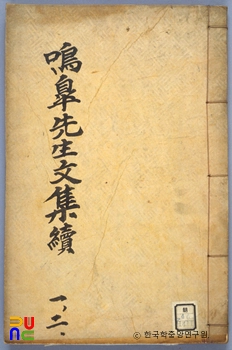 鳴皐先生文集續
一,二.
ⓒ 한국학중앙연구원